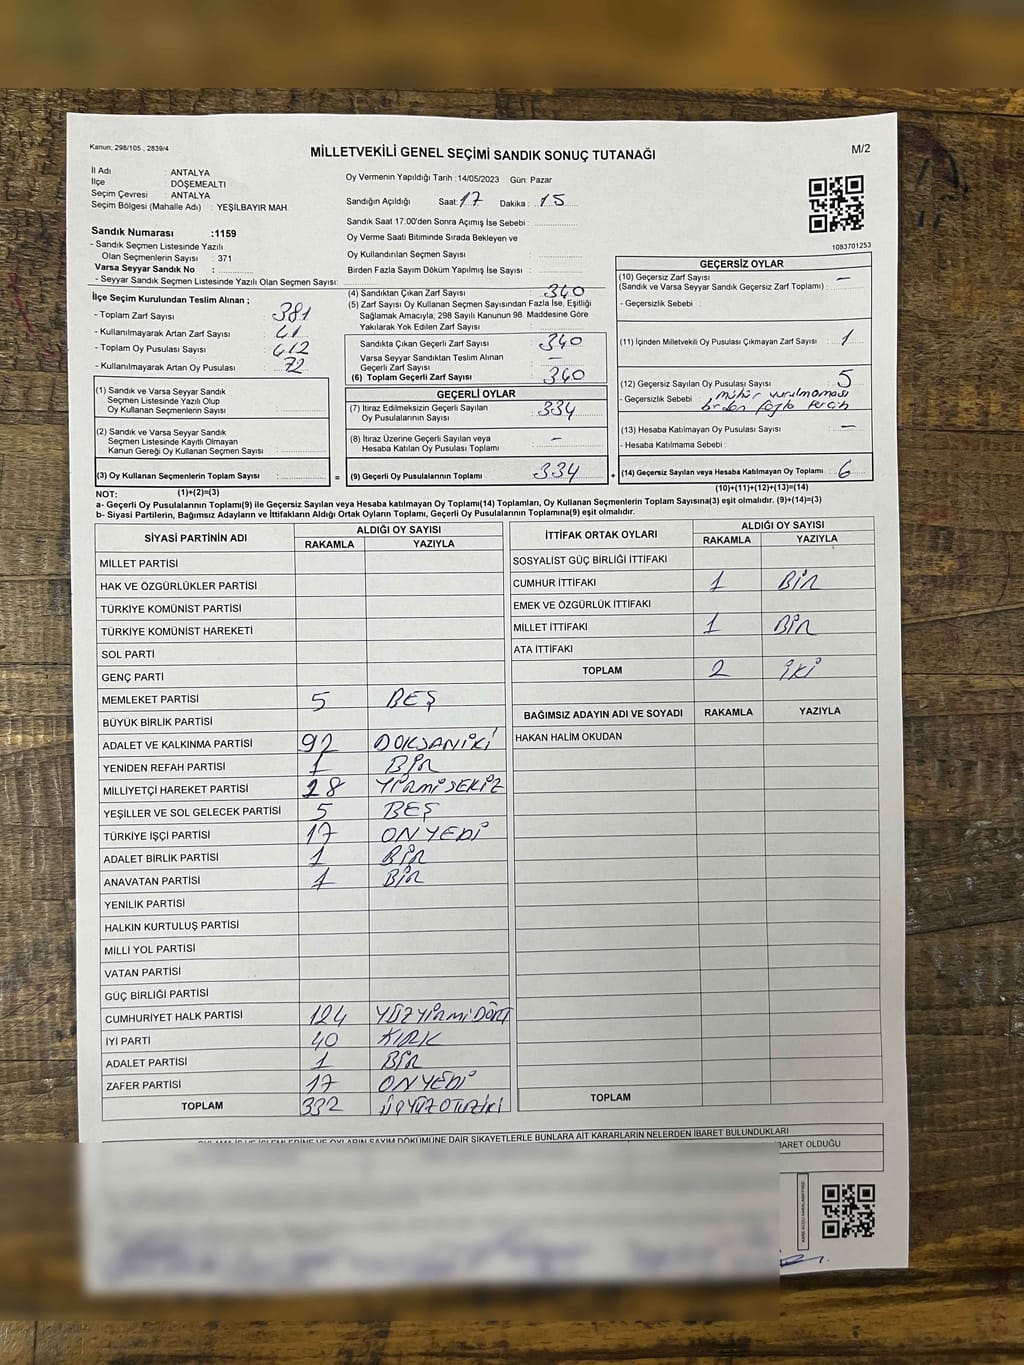 Kanun; 298/105 , 2839/4
MİLLETVEKİLİ GENEL SEÇİMİ SANDIK SONUÇ TUTANAĞI
M/2
İl Adı : ANTALYA
İlçe : DÖŞEMEALTI
Seçim Çevresi : ANTALYA
Seçim Bölgesi (Mahalle Adı) : YEŞİLBAYIR MAH.
Sandık Numarası :1159
- Sandık Seçmen Listesinde Yazılı
Olan Seçmenlerin Sayısı : 371
Varsa Seyyar Sandık No :
- Seyyar Sandık Seçmen Listesinde Yazılı Olan Seçmen Sayısı:
Oy Vermenin Yapıldığı Tarih :14/05/2023 Gün: Pazar
Sandığın Açıldığı Saat: 17 Dakika : 15
Sandık Saat 17:00'den Sonra Açımış İse Sebebi :
Oy Verme Saati Bitiminde Sırada Bekleyen ve
Oy Kullandırılan Seçmen Sayısı :
Birden Fazla Sayım Döküm Yapılmış İse Sayısı :
1083701253
İlçe Seçim Kurulundan Teslim Alınan ;
- Toplam Zarf Sayısı : 381
- Kullanılmayarak Artan Zarf Sayısı : 41
- Toplam Oy Pusulası Sayısı : 412
- Kullanılmayarak Artan Oy Pusulası : 72
(1) Sandık ve Varsa Seyyar Sandık
Seçmen Listesinde Yazılı Olup
Oy Kullanan Seçmenlerin Sayısı :
(2) Sandık ve Varsa Seyyar Sandık
Seçmen Listesinde Kayıtlı Olmayan
Kanun Gereği Oy Kullanan Seçmen Sayısı :
(3) Oy Kullanan Seçmenlerin Toplam Sayısı : =
(4) Sandıktan Çıkan Zarf Sayısı : 340
(5) Zarf Sayısı Oy Kullanan Seçmen Sayısından Fazla İse, Eşitliği
Sağlamak Amacıyla; 298 Sayılı Kanunun 98. Maddesine Göre
Yakılarak Yok Edilen Zarf Sayısı :
Sandıkta Çıkan Geçerli Zarf Sayısı : 340
Varsa Seyyar Sandıktan Teslim Alınan
Geçerli Zarf Sayısı : -
(6) Toplam Geçerli Zarf Sayısı : 340
GEÇERLİ OYLAR
(7) İtiraz Edilmeksizin Geçerli Sayılan
Oy Pusulalarının Sayısı : 334
(8) İtiraz Üzerine Geçerli Sayılan veya
Hesaba Katılan Oy Pusulası Toplamı : -
(9) Geçerli Oy Pusulalarının Toplamı : 334 +
GEÇERSİZ OYLAR
(10) Geçersiz Zarf Sayısı : -
(Sandık ve Varsa Seyyar Sandık Geçersiz Zarf Toplamı) :
- Geçersizlik Sebebi :
(11) İçinden Milletvekili Oy Pusulası Çıkmayan Zarf Sayısı : 1
(12) Geçersiz Sayılan Oy Pusulası Sayısı : 5
- Geçersizlik Sebebi : mühür vurulmaması
birden fazla tercih
(13) Hesaba Katılmayan Oy Pusulası Sayısı : -
- Hesaba Katılmama Sebebi :
(14) Geçersiz Sayılan veya Hesaba Katılmayan Oy Toplamı : 6
NOT: (1)+(2)=(3) (10)+(11)+(12)+(13)=(14)
a- Geçerli Oy Pusulalarının Toplamı(9) ile Geçersiz Sayılan veya Hesaba katılmayan Oy Toplamı(14) Toplamları, Oy Kullanan Seçmenlerin Toplam Sayısına(3) eşit olmalıdır. (9)+(14)=(3)
b- Siyasi Partilerin, Bağımsız Adayların ve İttifakların Aldığı Ortak Oyların Toplamı, Geçerli Oy Pusulalarının Toplamına(9) eşit olmalıdır.
SİYASİ PARTİNİN ADI ALDIĞI OY SAYISI
RAKAMLA YAZIYLA
MİLLET PARTİSİ
HAK VE ÖZGÜRLÜKLER PARTİSİ
TÜRKİYE KOMÜNİST PARTİSİ
TÜRKİYE KOMÜNİST HAREKETİ
SOL PARTİ
GENÇ PARTİ
MEMLEKET PARTİSİ 5 BEŞ
BÜYÜK BİRLİK PARTİSİ
ADALET VE KALKINMA PARTİSİ 92 DOKSANİKİ
YENİDEN REFAH PARTİSİ 1 BİR
MİLLİYETÇİ HAREKET PARTİSİ 28 YİRMİSEKİZ
YEŞİLLER VE SOL GELECEK PARTİSİ 5 BEŞ
TÜRKİYE İŞÇİ PARTİSİ 17 ONYEDİ
ADALET BİRLİK PARTİSİ 1 BİR
ANAVATAN PARTİSİ 1 BİR
YENİLİK PARTİSİ
HALKIN KURTULUŞ PARTİSİ
MİLLİ YOL PARTİSİ
VATAN PARTİSİ
GÜÇ BİRLİĞİ PARTİSİ
CUMHURİYET HALK PARTİSİ 124 YÜZYİRMİDÖRT
İYİ PARTİ 40 KIRK
ADALET PARTİSİ 1 BİR
ZAFER PARTİSİ 17 ONYEDİ
TOPLAM 332 ÜÇYÜZOTUZİKİ
İTTİFAK ORTAK OYLARI ALDIĞI OY SAYISI
RAKAMLA YAZIYLA
SOSYALİST GÜÇ BİRLİĞİ İTTİFAKI
CUMHUR İTTİFAKI 1 BİR
EMEK VE ÖZGÜRLÜK İTTİFAKI
MİLLET İTTİFAKI 1 BİR
ATA İTTİFAKI
TOPLAM 2 İKİ
BAĞIMSIZ ADAYIN ADI VE SOYADI RAKAMLA YAZIYLA
HAKAN HALİM OKUDAN
TOPLAM
DÖKÜMÜNE DAİR ŞİKAYETLERLE BUNLARA AİT KARARLARIN NELERDEN İBARET BULUNDUKLARI
İBARET OLDUĞU